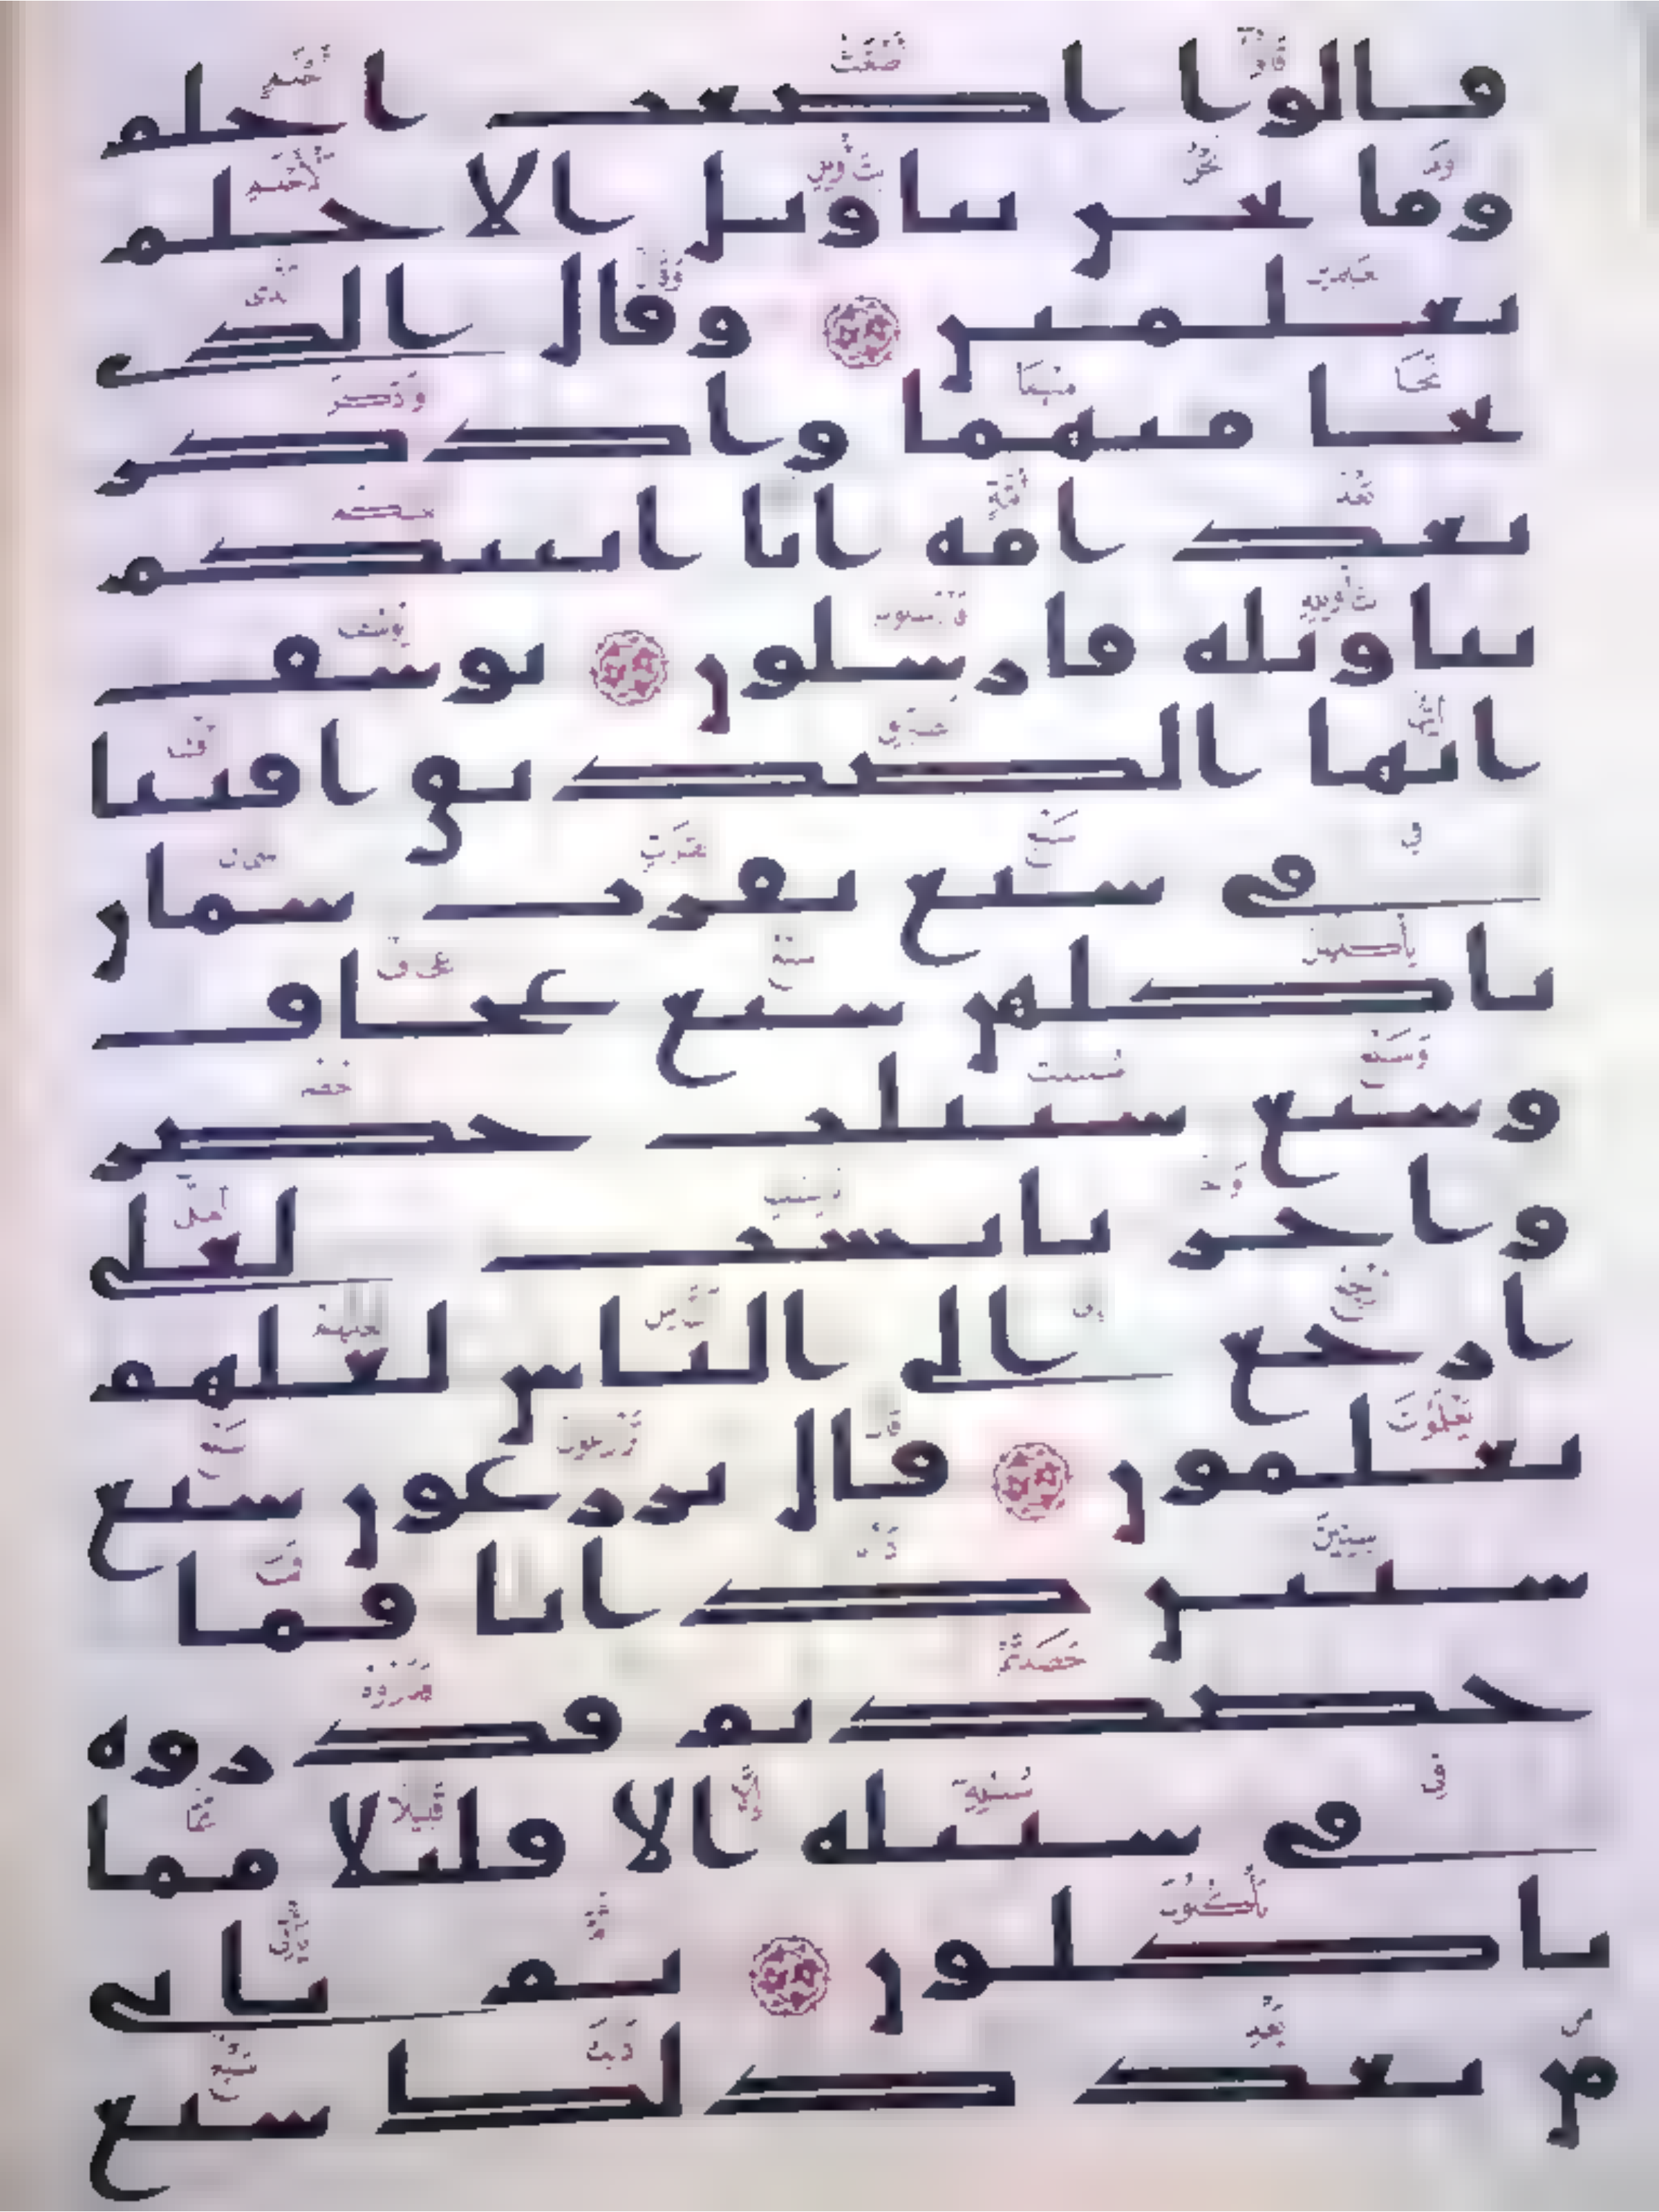 قالوا اضغث احلم
وما نحن بتاويل الاحلم
بعلمين وقال الذي
نجا منهما وادكر
بعد امه انا انبئكم
بتاويله فارسلون يوسف
ايها الصديق افتنا
في سبع بقرت سمان
ياكلهن سبع عجاف
وسبع سنبلت خضر
واخر يابست لعلي
ارجع الى الناس لعلهم
يعلمون قال تزرعون سبع
سنين دابا فما
حصدتم فذروه
في سنبله الا قليلا مما
تاكلون ثم ياتي
من بعد ذلك سبع